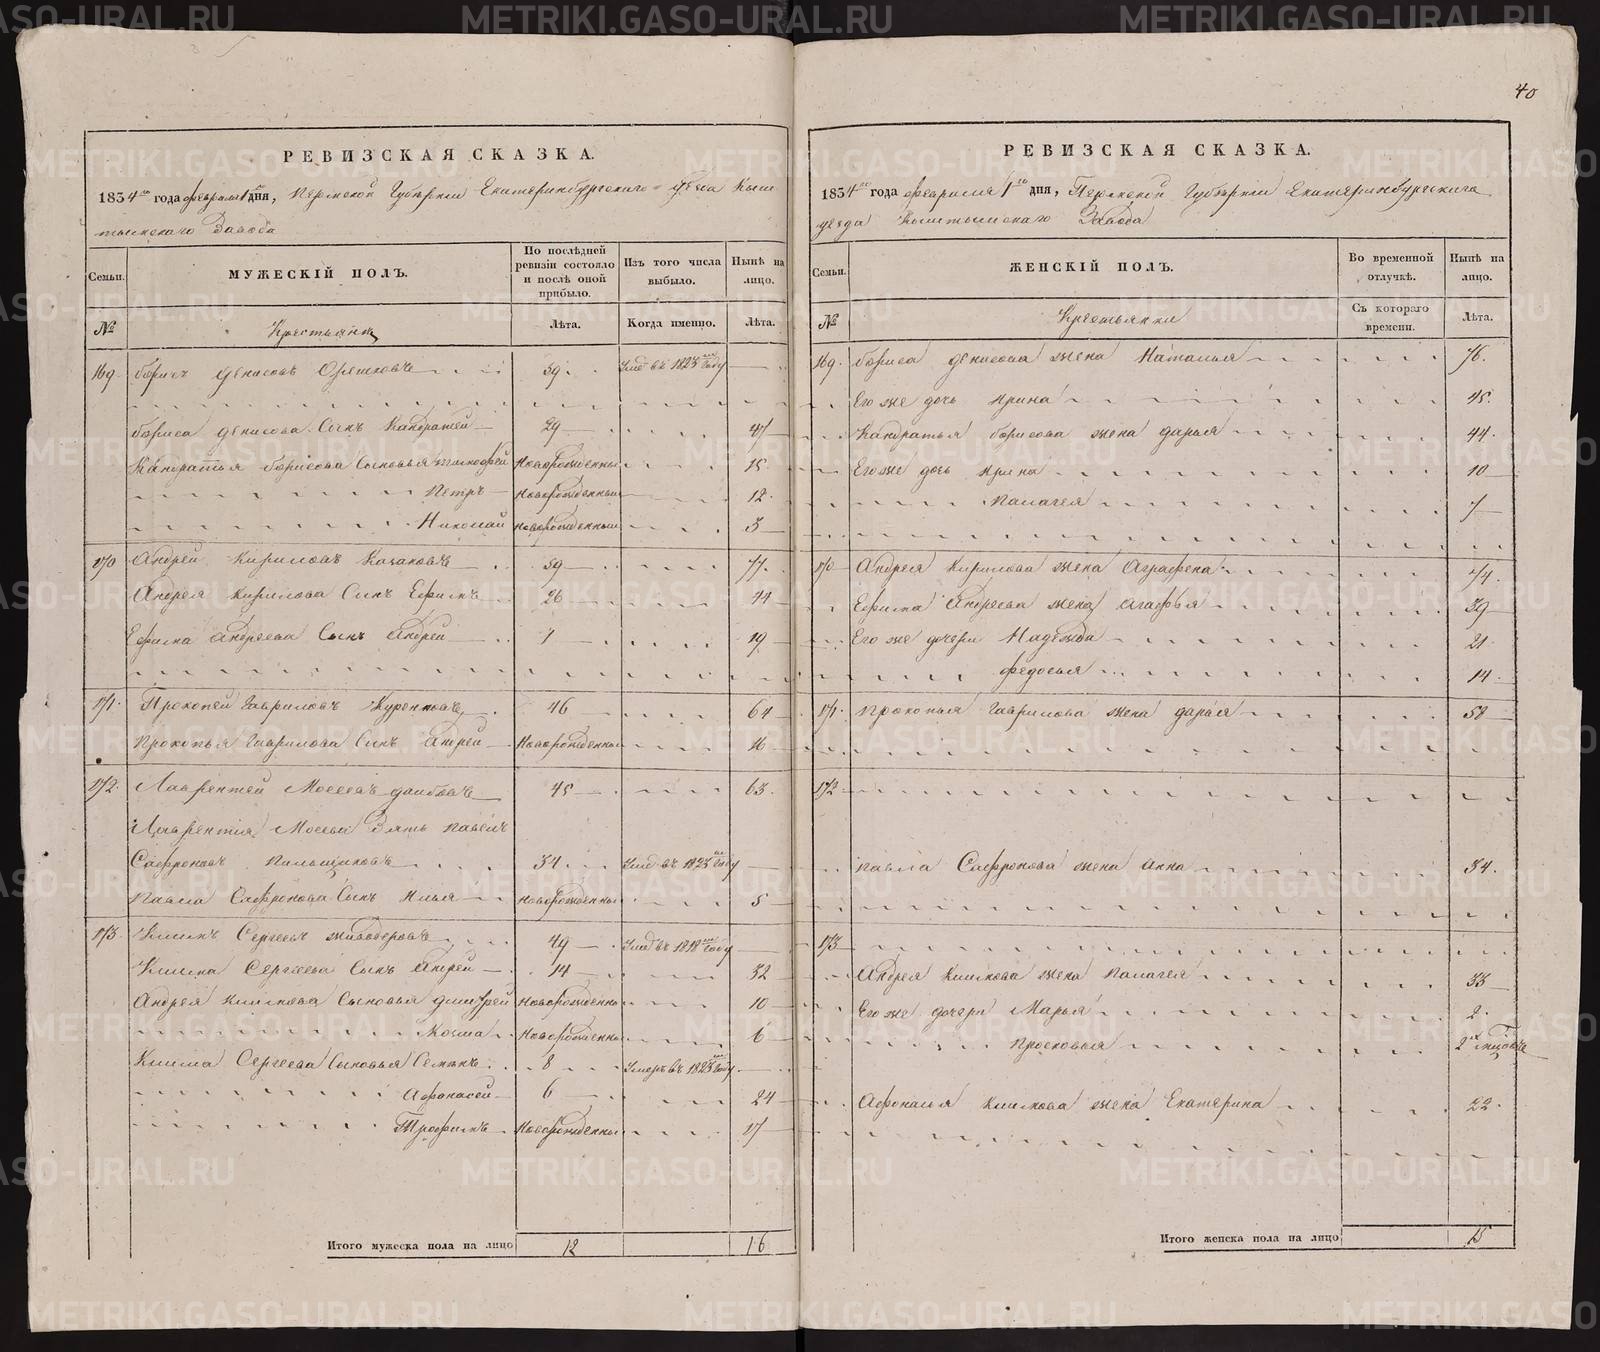 40
РЕВИЗСКАЯ СКАЗКА.
1834го года февраля 1го дня, Пермской Губернии Екатеринбургского уезда Кыш
тымского Завода
Семьи.
МУЖЕСКІЙ ПОЛЪ.
По послѣдней ревизіи состояло и послѣ оной прибыло.
Изъ того числа выбыло.
Нынѣ на лицо.
№
Крестьяне
Лѣта.
Когда именно.
Лѣта.
169. Борисъ Денисовъ 59 Умр въ 1823м году
Бориса Денисова Сынъ Кандратей 29 47
Кандратья Борисова Сыновья Тимофей новорожденны 15
Петръ новорожденный 12
Николай новорожденный 3
170 Андрей Кириловъ Казаковъ 59 77
Андрея Кирилова Сынъ Ефимъ 26 44
Ефима Андреева Сынъ Андрей 1 19
171 Прокопей Гавриловъ Куренновъ 46 64
Прокопья Гаврилова Сынъ Андрей новорожденны 16
172. Лаврентей Мосеевъ 45 63
Лаврентия Мосева Зять Павелъ
Сафроновъ Пильщиковъ 34 Умр въ 1823м году
Павла Сафронова Сынъ Илья новорожденны 5
173 Климъ Сергеевъ Живодеровъ 49 Умр въ 1818м году
Клима Сергеева Сынъ Андрей 14 32
Андрея Климова Сыновья Дмитрей новорожденны 10
Козма новорожденны 6
Клима Сергеева Сыновья Семенъ 8 Умеръ въ 1823м году
Афонасей 6 24
Трофимъ новорожденны 17
Итого мужеска пола на лицо 12 16
РЕВИЗСКАЯ СКАЗКА.
1834го года февраля 1го дня, Пермской Губернии Екатеринбургского
уезда Кыштымского Завода
Семьи.
ЖЕНСКІЙ ПОЛЪ.
Во временной отлучкѣ.
Нынѣ на лицо.
№
Крестьянки
Съ котораго времени.
Лѣта.
169. Бориса Денисова жена Наталья 76.
Его же дочь Ирина 45.
Кандратья Борисова жена Дарья 44
Его же дочь Ирина 10
Палагея 7
170 Андрея Кирилова жена Аграфена 74.
Ефима Андреева жена Агафья 39
Его же дочери Надежда 21
Федосья 14
171. Прокопья Гаврилова жена Дарья 58
172
Павла Сафронова жена Анна 34.
173
Андрея Климова жена Палагея 33
Его же дочери Марья 2.
Просковья
Афонасья Климова жена Екатерина 22
Итого женска пола на лицо 15
METRIKI.GASO-URAL.RU